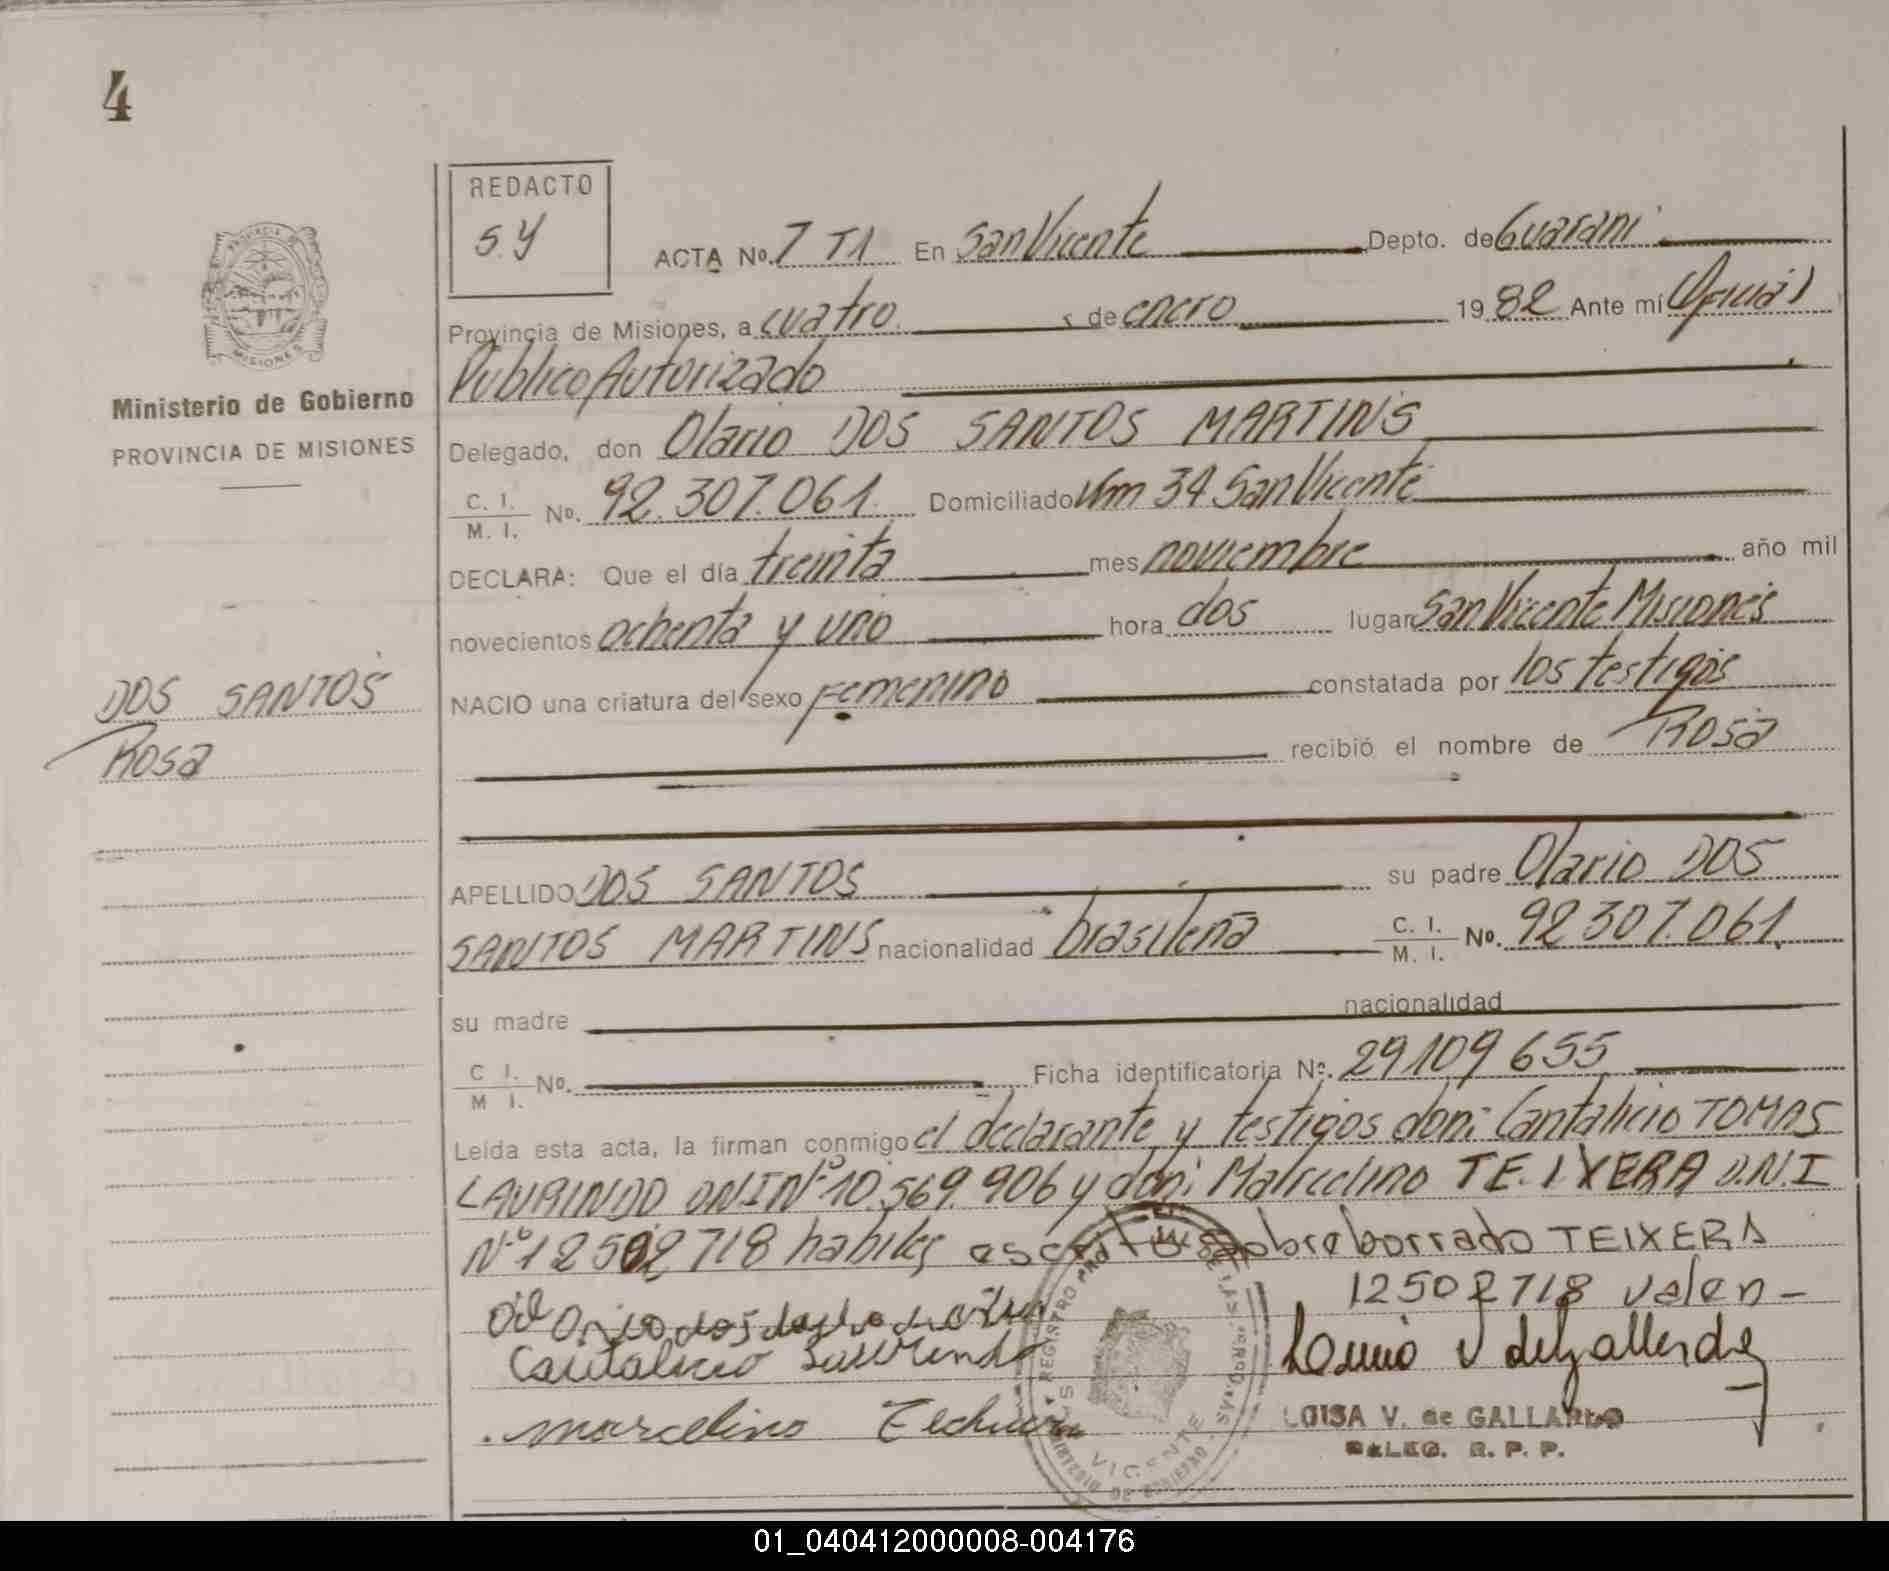 4
REDACTO
S.Y
ACTA No. 7 T1 En San Vicente Depto. de Guarani
Provincia de Misiones, a cuatro de enero 1982 Ante mí Oficial
Publico Autorizado
PROVINCIA DE
MISIONES
Ministerio de Gobierno
PROVINCIA DE MISIONES
Delegado, don Olario DOS SANTOS MARTINS
C. I.
M. I. No. 92.307.061. Domiciliado Km 34 San Vicente
DECLARA: Que el día treinta mes noviembre año mil
novecientos ochenta y uno hora dos lugar San Vicente Misiones
DOS SANTOS
Rosa
NACIO una criatura del sexo femenino constatada por los testigos
recibió el nombre de Rosa
APELLIDO DOS SANTOS su padre Olario DOS
SANTOS MARTINS nacionalidad brasileña C. I. M. I. No. 92307.061.
su madre nacionalidad
C I. M I. No. Ficha identificatoria Nº. 29109655
Leída esta acta, la firman conmigo el declarante y testigos don: Cantalicio TOMAS
LAURINDO DNI Nº 10.569.906 y don: Marcelino TEIXERA D.N.I
Nº 12502718 habiles escrito sobre borrado TEIXERA
12502718 valen-
Cantalicio Laurindo
marcelino
LUISA V. de GALLARDO
DELEG. R. P. P.
REGISTRO
VICENTE
01_040412000008-004176